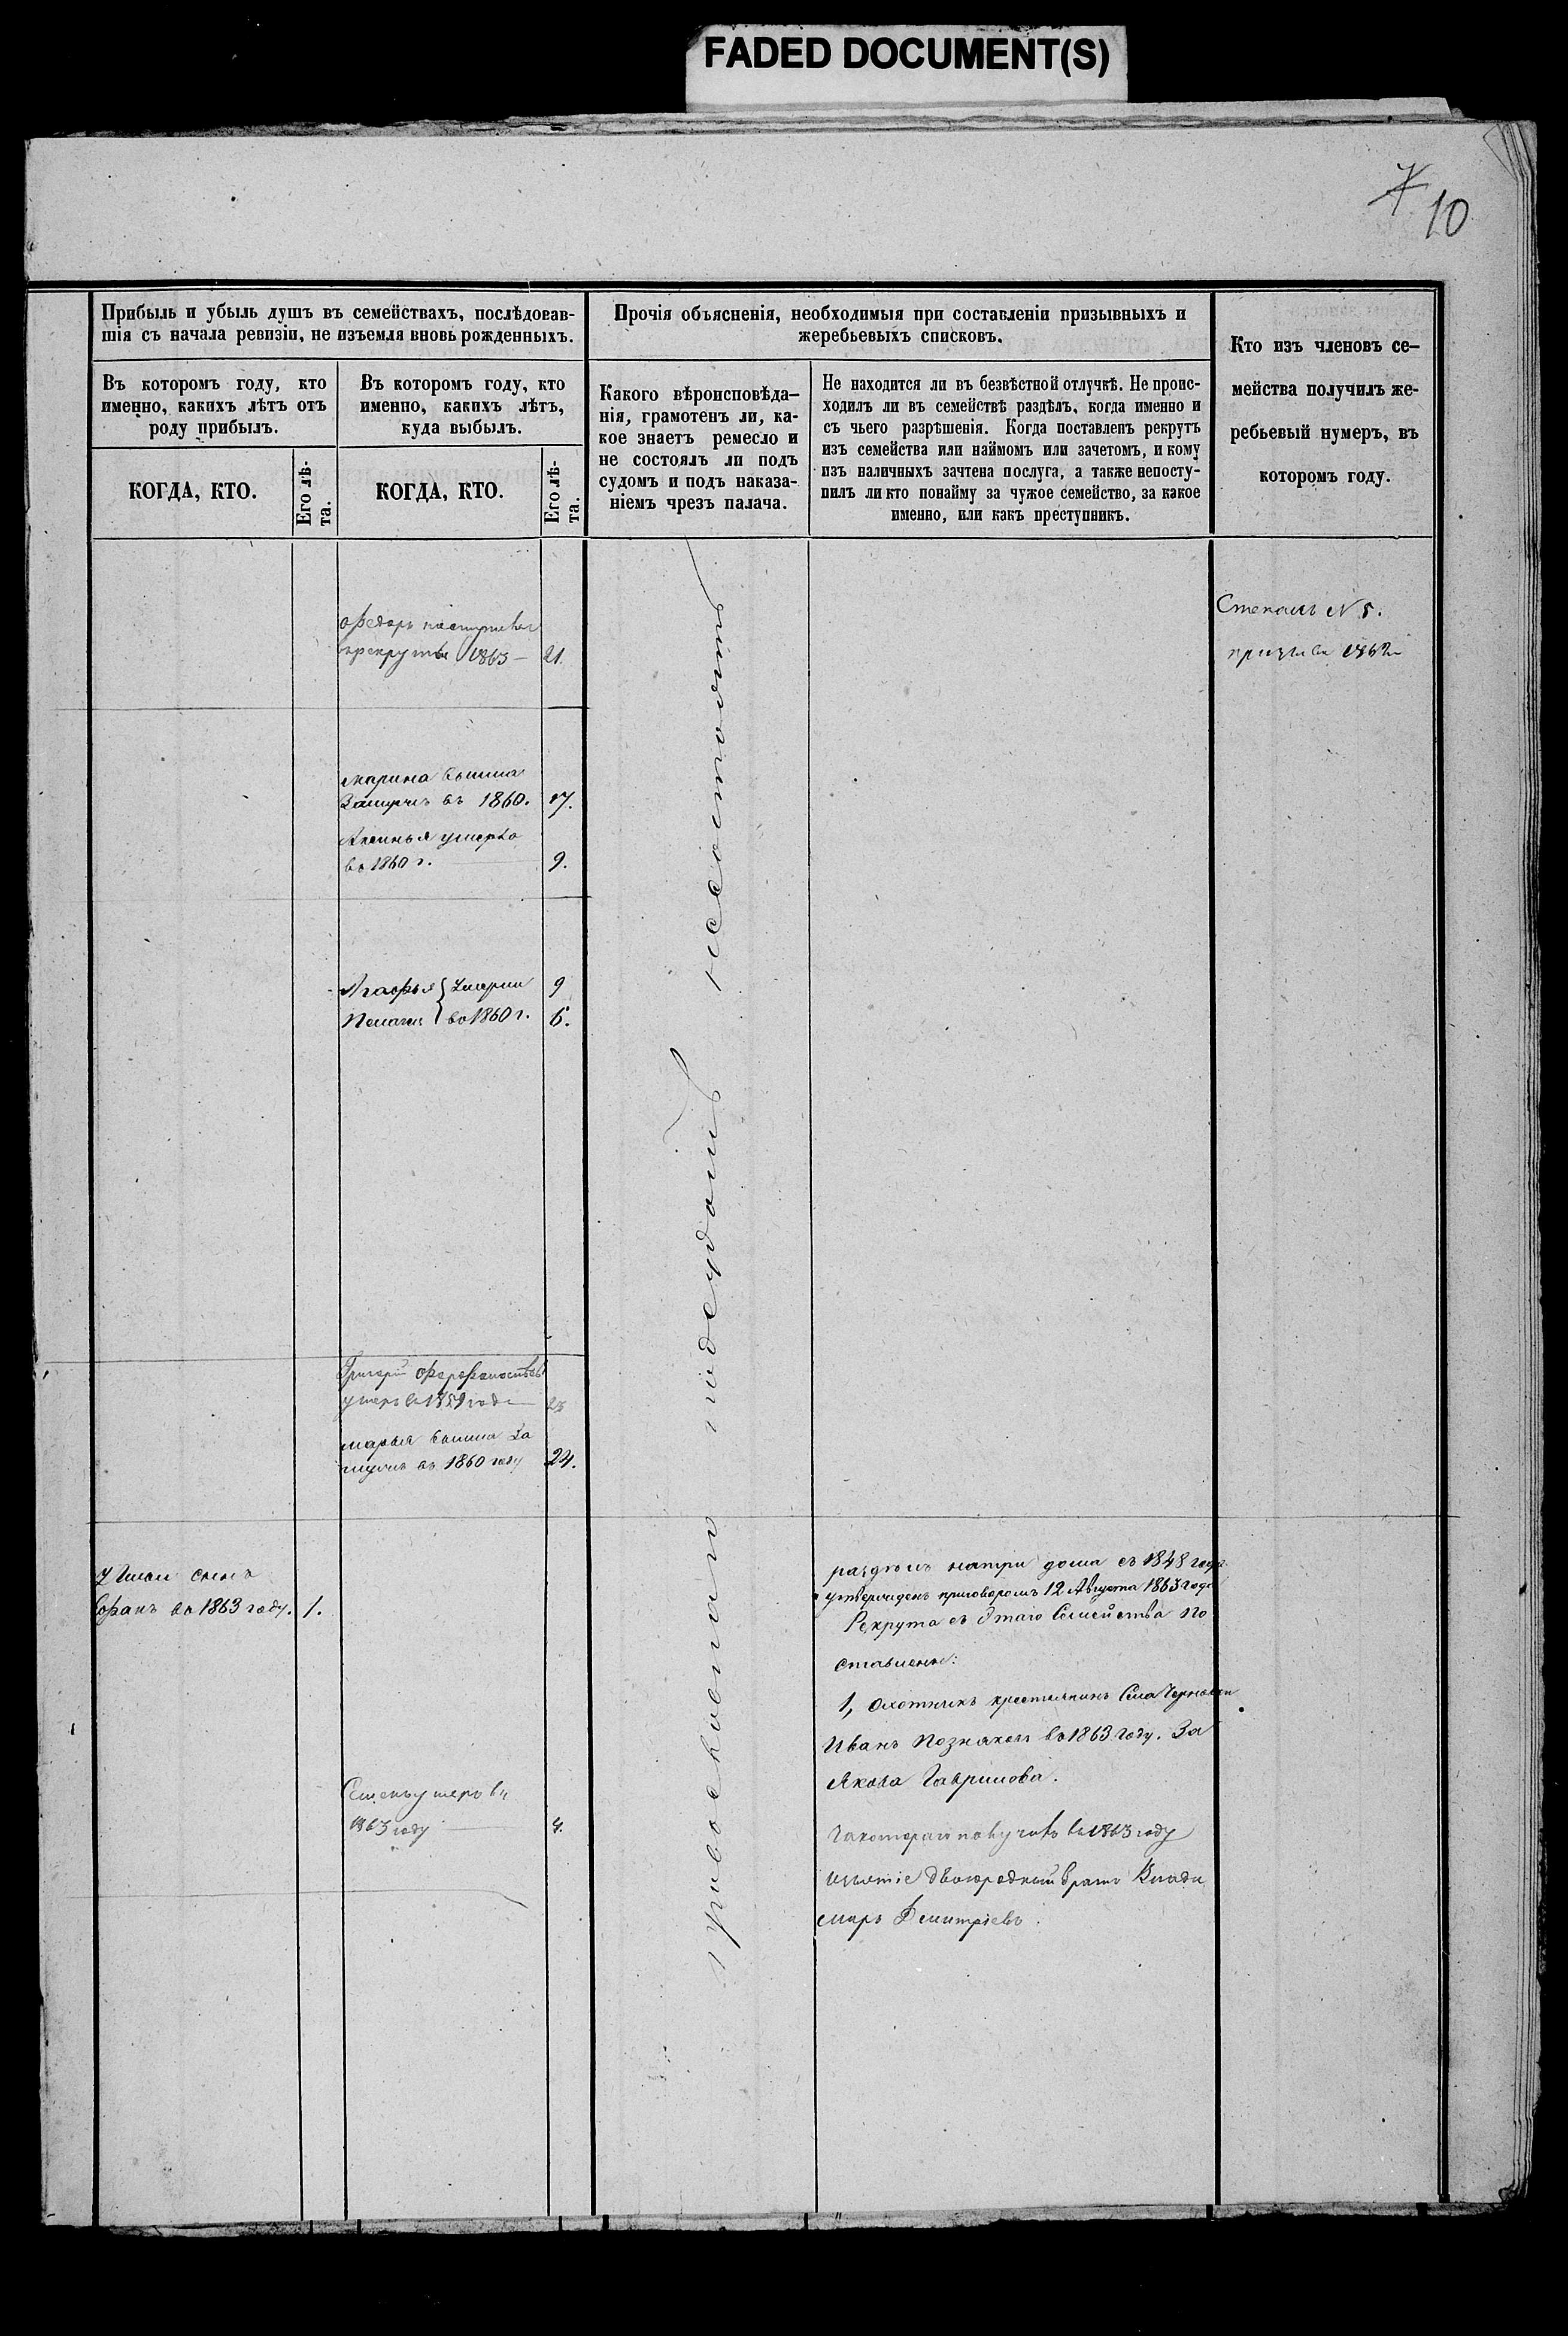 FADED DOCUMENT(S)
7
10
Прибыль и убыль душъ въ семействахъ, послѣдовав-
шія съ начала ревизіи, не изъемля вновь рожденныхъ.
Въ которомъ году, кто
именно, какихъ лѣтъ отъ
роду прибылъ.
КОГДА, КТО.
Его лѣ-
та.
Въ которомъ году, кто
именно, какихъ лѣтъ,
куда выбылъ.
КОГДА, КТО.
Его лѣ-
та.
Прочія объясненія, необходимыя при составленіи призывныхъ и
жеребьевыхъ списковъ.
Какого вѣроисповѣда-
нія, грамотенъ ли, ка-
кое знаетъ ремесло и
не состоялъ ли подъ
судомъ и подъ наказа-
ніемъ чрезъ палача.
Не находится ли въ безвѣстной отлучкѣ. Не проис-
ходилъ ли въ семействѣ раздѣлъ, когда именно и
съ чьего разрѣшенія. Когда поставленъ рекрутъ
изъ семейства или наймомъ или зачетомъ, и кому
изъ наличныхъ зачтена послуга, а также непосту-
пилъ ли кто понайму за чужое семейство, за какое
именно, или какъ преступникъ.
Кто изъ членовъ се-
мейства получилъ же-
ребьевый нумеръ, въ
которомъ году.
Федоръ поступилъ
врекруты 1863 — 21.
Степанъ N 5.
призыва 1862
Марина вышла
Замужъ въ 1860. 17.
Аксинья умерла
въ 1860 г. 9.
Агафья Умерли 9
Пелагея во 1860 г. 6.
Григорій
умеръ въ 1859 году 23
Марья вышла За
мужъ въ 1860 году 24.
сынъ
во 1863 году. 1.
Семенъ умеръ въ
1863 году 4.
грековскаго подсудомъ несостоятъ
раздѣлъ натри дома съ 1848 года
утвержденъ приговоромъ 12 Августа 1863 года
Рекрута съ Этаго Семейства по
ставлены:
1, Охотникъ крестьянинъ Села
Иванъ Позняковъ во 1863 году. За
Якова Гаврилова.
Закотораго получилъ въ 1863 году
изъятіе двоюродный братъ Влади
миръ Дмитріевъ.